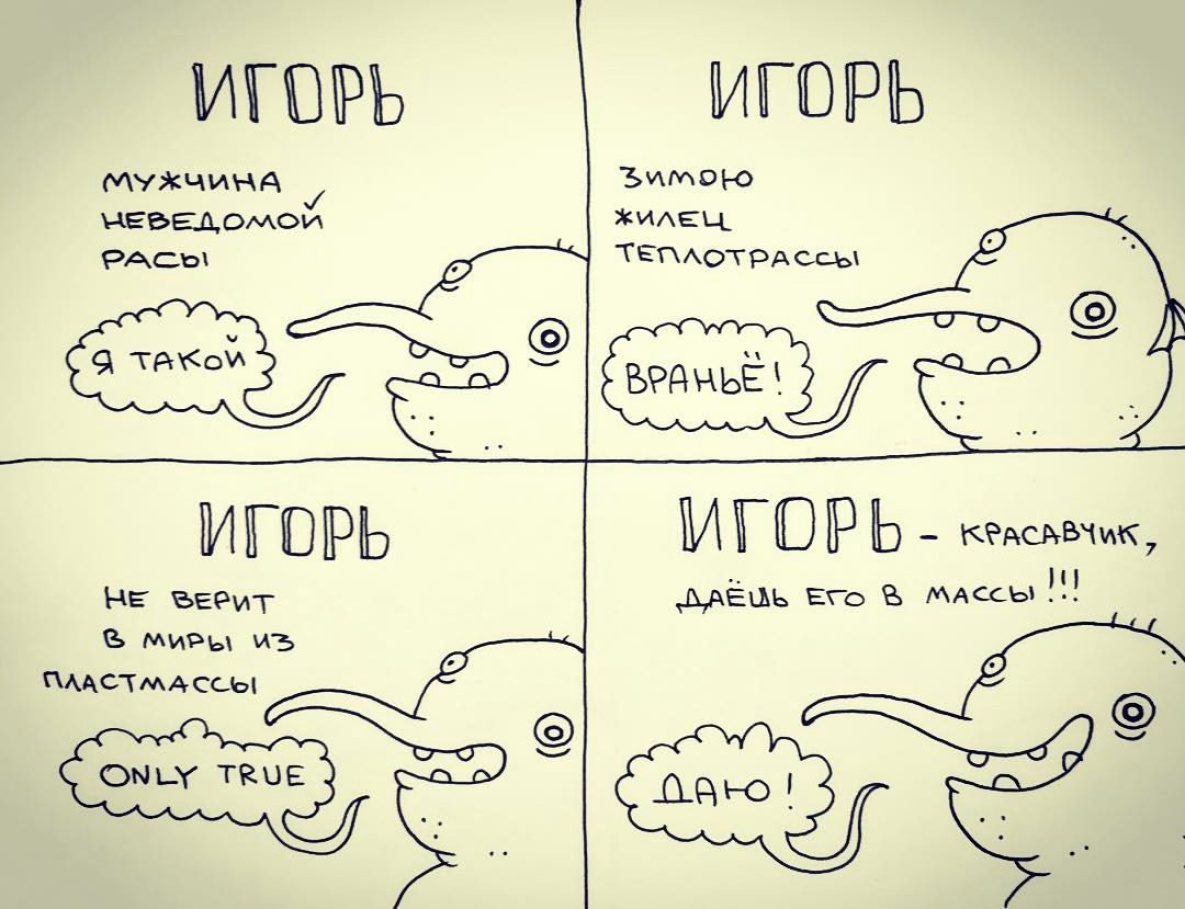 ИГОРЬ
МУЖЧИНА
НЕВЕДОМОЙ
РАСЫ
Я ТАКОЙ
ИГОРЬ
ЗИМОЮ
ЖИЛЕЦ
ТЕПЛОТРАССЫ
ВРАНЬЁ!
ИГОРЬ
НЕ ВЕРИТ
В МИРЫ ИЗ
ПЛАСТМАССЫ
ONLY TRUE
ИГОРЬ - КРАСАВЧИК,
ДАЁШЬ ЕГО В МАССЫ!!!
ДАЮ!